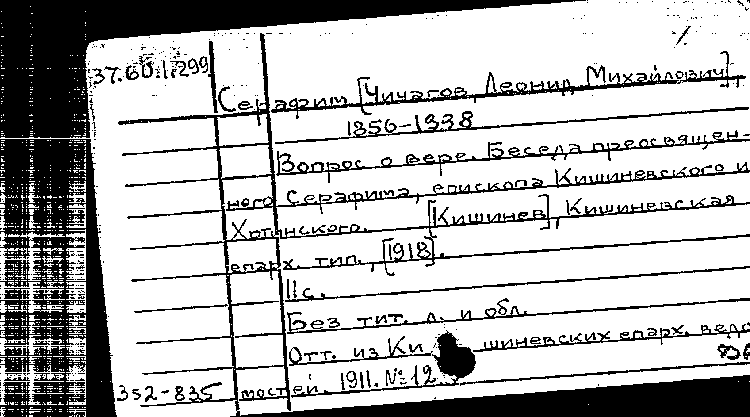 37.60.1.299
Серафим [Чичагов, Леонид Михайлович],
1856-1938
Вопрос о вере. Беседа преосвящен-
ного Серафима, епископа Кишиневского и
Хотинского. [Кишинев], Кишиневская
епарх. тип., [1918].
11 с.
Без тит. л. и обл.
Отт. из Ки шиневских епарх. ведо
352-835 мостей. 1911. № 12